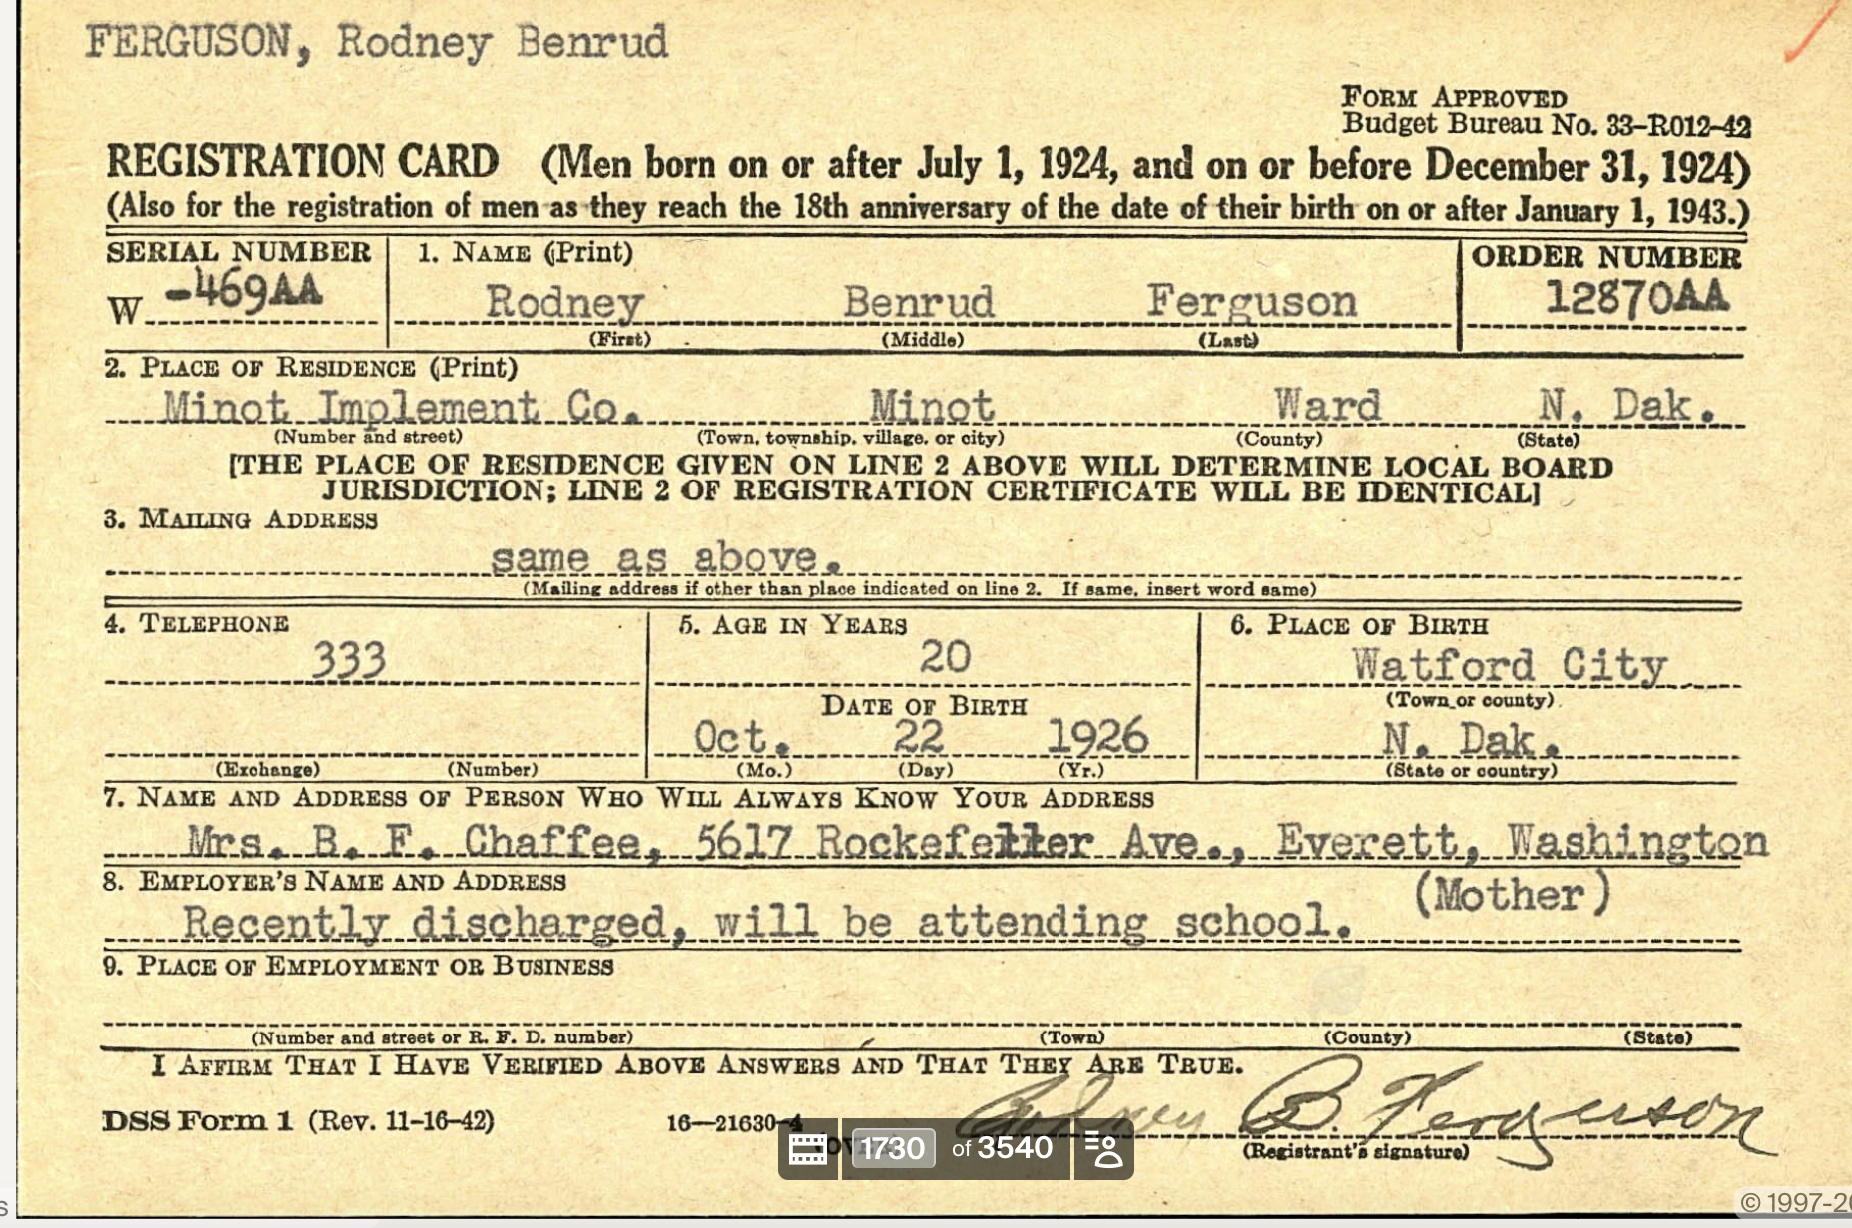 FERGUSON, Rodney Benrud
FORM APPROVED
Budget Bureau No. 33-R012-42
REGISTRATION CARD (Men born on or after July 1, 1924, and on or before December 31, 1924)
(Also for the registration of men as they reach the 18th anniversary of the date of their birth on or after January 1, 1943.)
SERIAL NUMBER 1. NAME (Print) ORDER NUMBER
W -469AA Rodney Benrud Ferguson 12870AA
(First) (Middle) (Last)
2. PLACE OF RESIDENCE (Print)
Minot Implement Co. Minot Ward N. Dak.
(Number and street) (Town, township, village, or city) (County) (State)
[THE PLACE OF RESIDENCE GIVEN ON LINE 2 ABOVE WILL DETERMINE LOCAL BOARD
JURISDICTION; LINE 2 OF REGISTRATION CERTIFICATE WILL BE IDENTICAL]
3. MAILING ADDRESS
same as above.
(Mailing address if other than place indicated on line 2. If same, insert word same)
4. TELEPHONE 5. AGE IN YEARS 6. PLACE OF BIRTH
333 20 Watford City
DATE OF BIRTH (Town or county)
Oct. 22 1926 N. Dak.
(Exchange) (Number) (Mo.) (Day) (Yr.) (State or country)
7. NAME AND ADDRESS OF PERSON WHO WILL ALWAYS KNOW YOUR ADDRESS
Mrs. B. F. Chaffee, 5617 Rockefeller Ave., Everett, Washington
8. EMPLOYER'S NAME AND ADDRESS (Mother)
Recently discharged, will be attending school.
9. PLACE OF EMPLOYMENT OR BUSINESS
(Number and street or R. F. D. number) (Town) (County) (State)
I AFFIRM THAT I HAVE VERIFIED ABOVE ANSWERS AND THAT THEY ARE TRUE.
DSS Form 1 (Rev. 11-16-42) 16—21630-4 Rodney B. Fergerson
1730 of 3540 (Registrant's signature)
© 1997-20